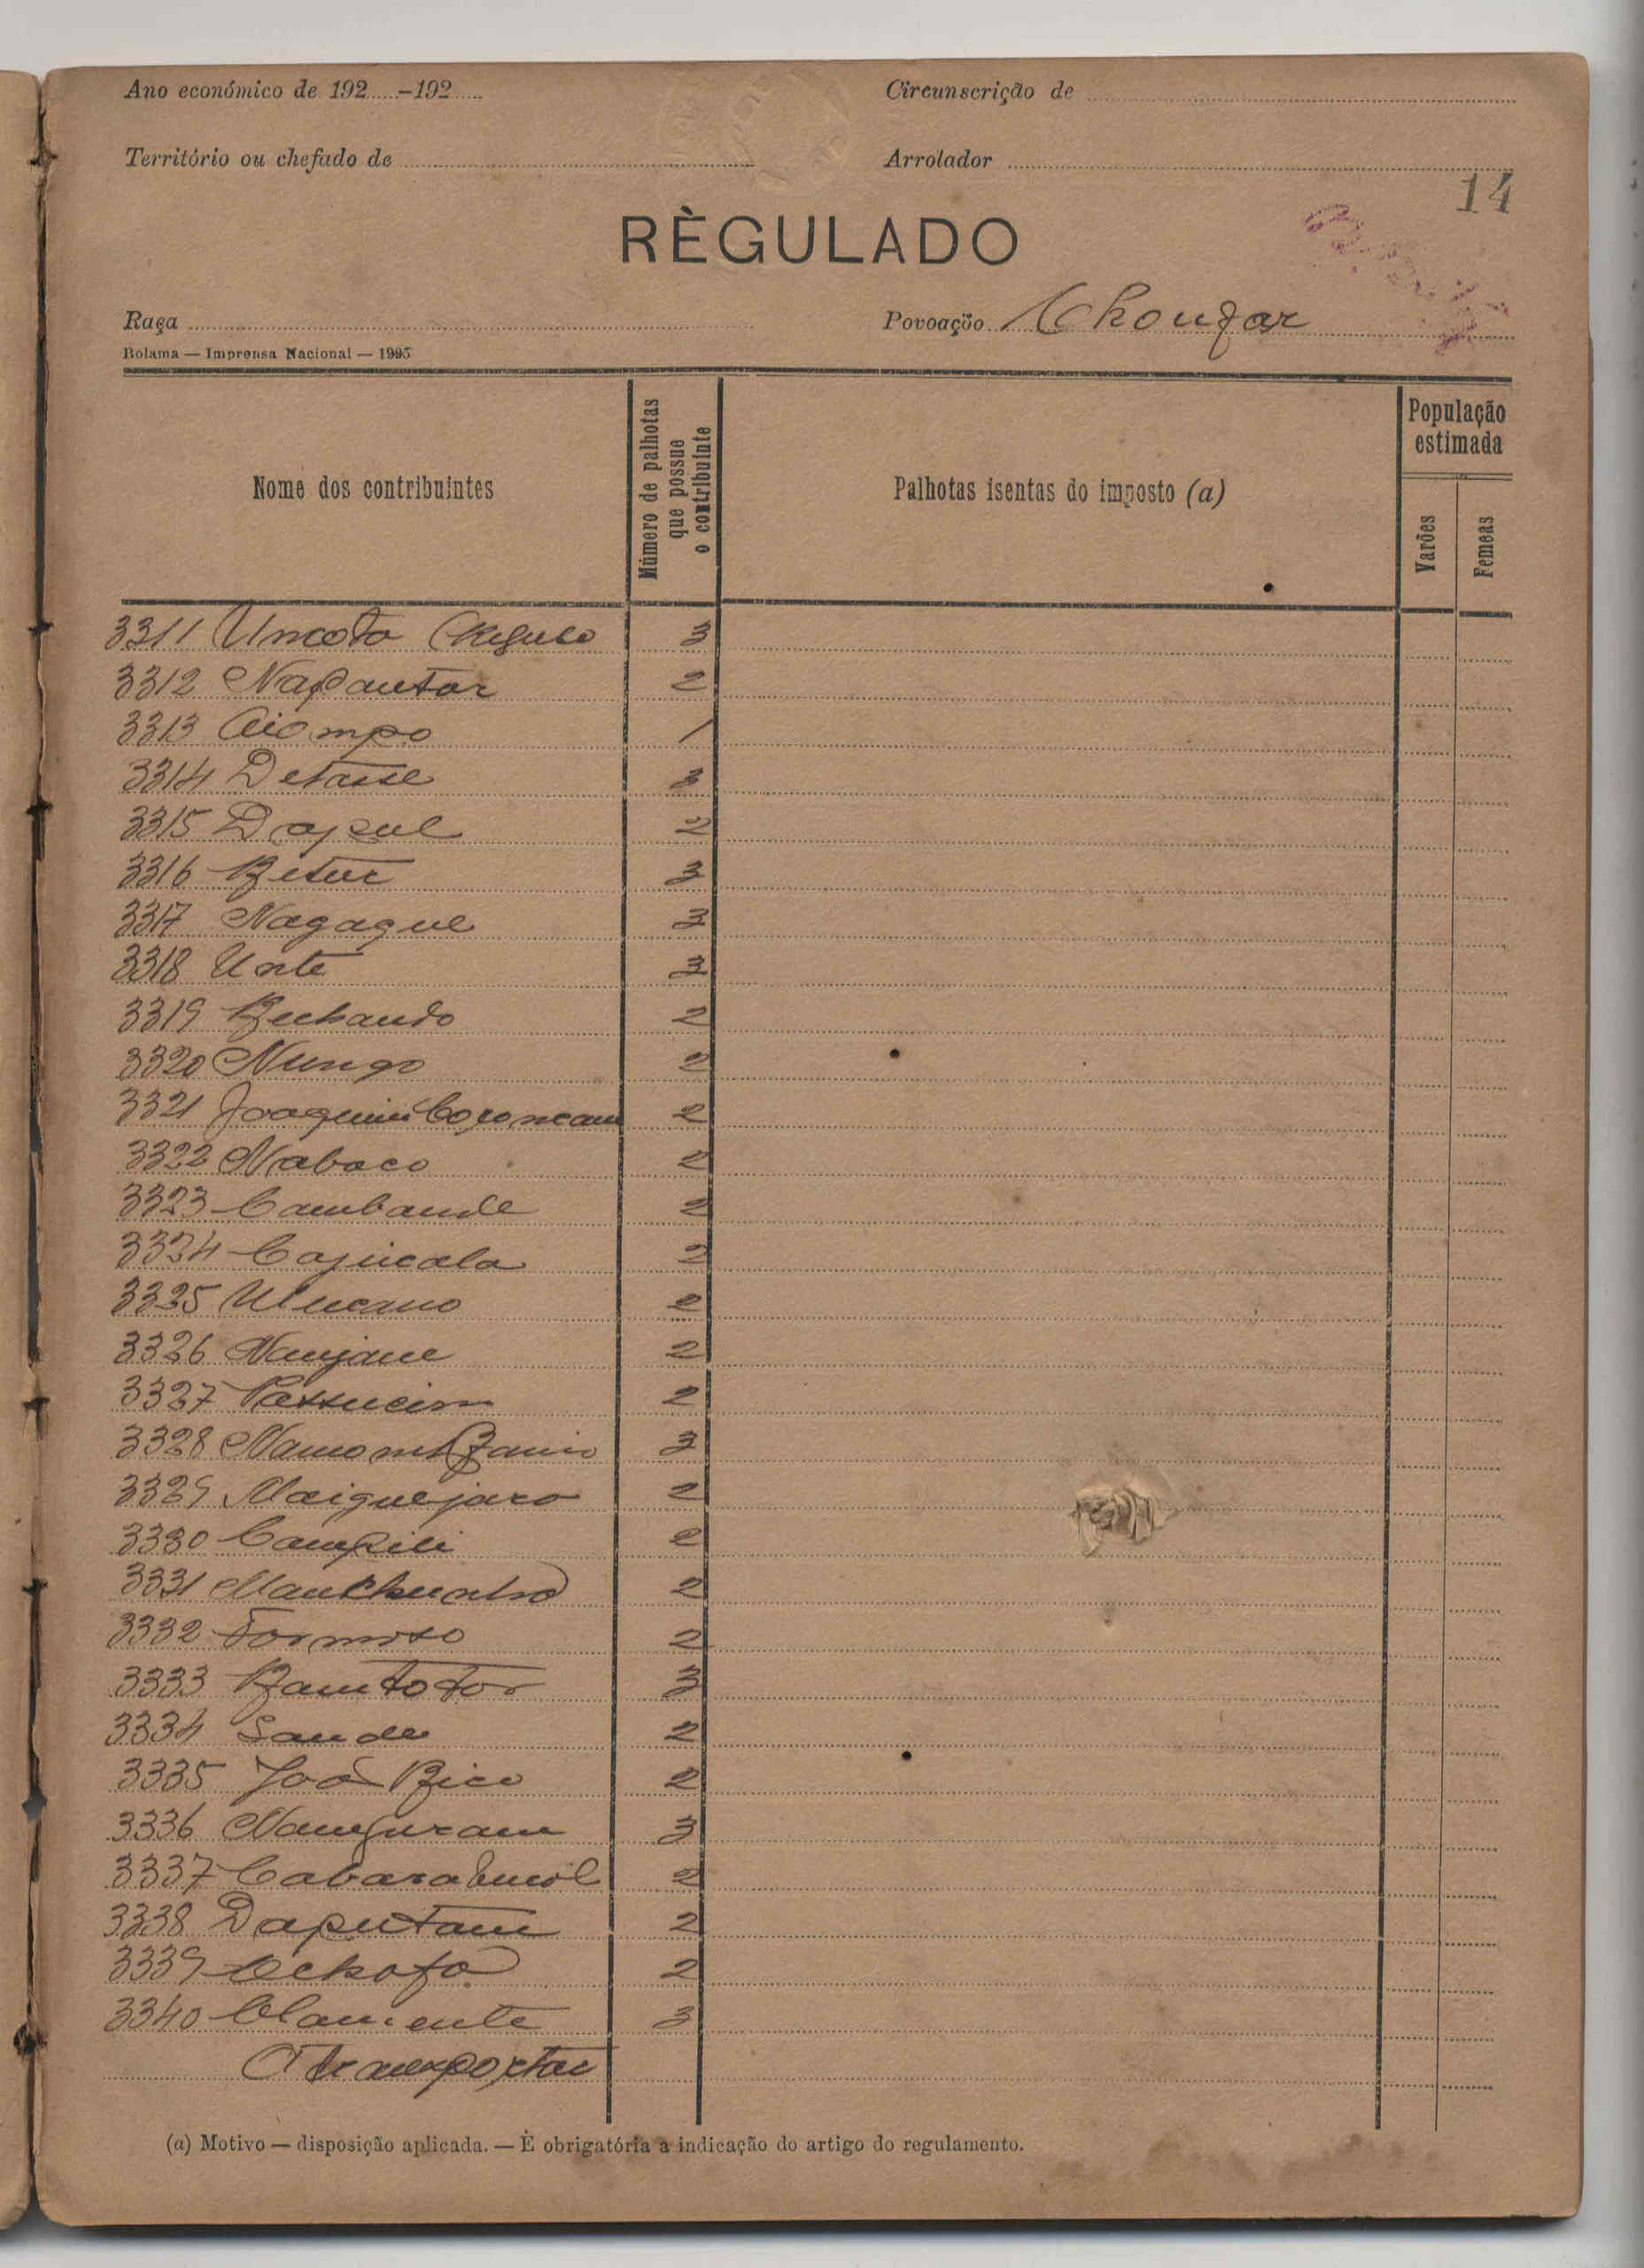 Ano económico de 192.....-192.....
Circunscrição de
Território ou chefado de
Arrolador
14
RÈGULADO
Raça
Povoação Choufar
Bolama — Imprensa Nacional — 1925
Nome dos contribuintes
Número de palhotas que possue o contribuinte
Palhotas isentas do imposto (a)
População estimada
Varões
Femeas
3311 Uncoto Regulo 3
3312 Napautar 2
3313 Aiompo 1
3314 Detasse 3
3315 Dapul 2
3316 Betur 3
3317 Nagague 3
3318 Unte 3
3319 Bechando 2
3320 Nungo 2
3321 Joaquim 2
3322 Nabaco 2
3323 Cambande 2
3324 Cajucala 2
3325 Ulucano 2
3326 Naujane 2
3327 2
3328 3
3329 Maiguejaro 2
3330 Campili 2
3331 2
3332 Formoso 2
3333 Bamtotor 3
3334 Sande 2
3335 João Bico 2
3336 3
3337 2
3338 Daputam 2
3339 2
3340 Clamente 3
A transportar
(a) Motivo — disposição aplicada. — É obrigatória a indicação do artigo do regulamento.